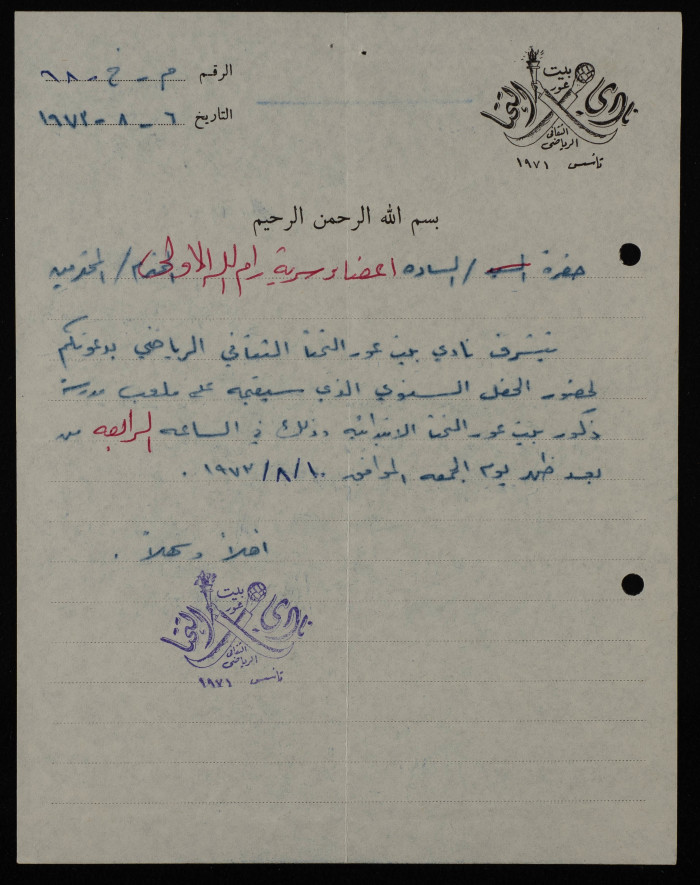 الرقم م - خ - ٦٨
التاريخ ٦ - ٨ - ١٩٧٣
نادي بيت عور التحتا
الثقافي
الرياضي
تأسس ١٩٧١
بسم الله الرحمن الرحيم
حضرة السيد / الساده اعضاء سرية رام الله الاولى المحترم / المحترمين
يتشرف نادي بيت عور التحتا الثقافي الرياضي بدعوتكم
لحضور الحفل السنوي الذي سيقيمه على ملعب مدرسة
ذكور بيت عور التحتا الابتدائيه وذلك في الساعه الرابعه من
بعد ظهر يوم الجمعه الموافق ١٠/٨/١٩٧٣ .
اهلاً وسهلاً .
نادي بيت عور التحتا
الثقافي
الرياضي
تأسس ١٩٧١